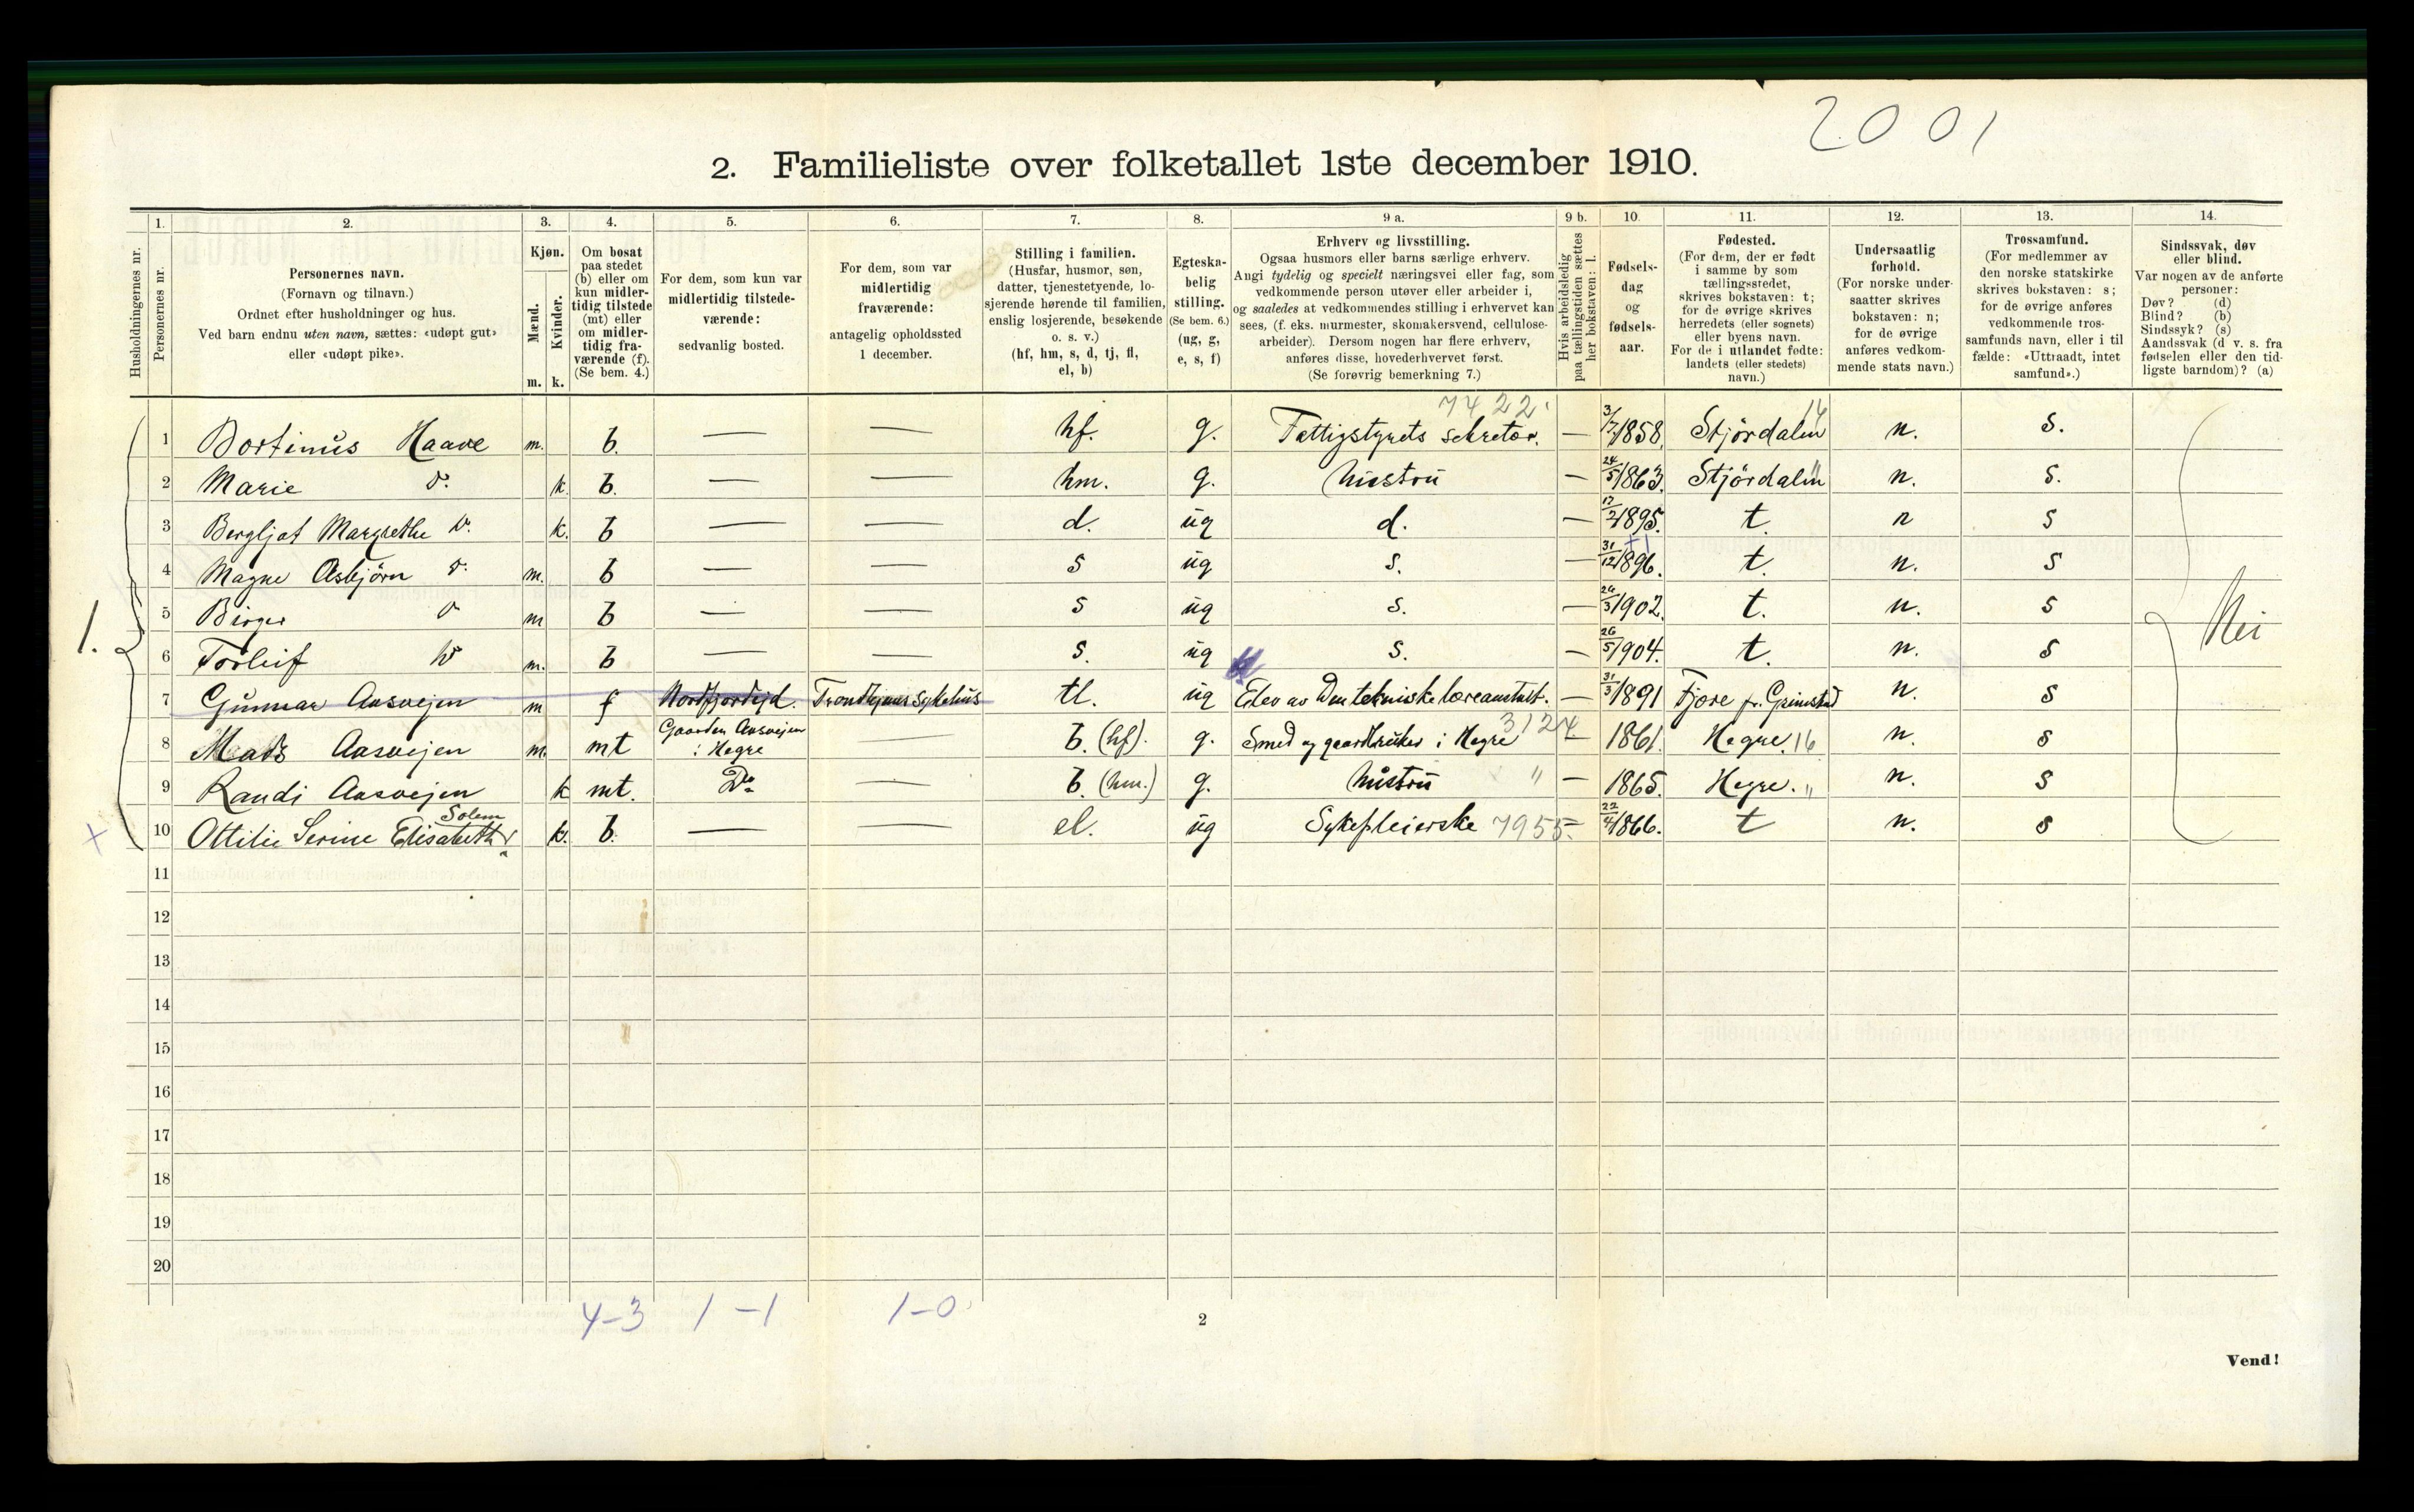 2001
2. Familieliste over folketallet 1ste december 1910.
Husholdningernes nr.
1. Personernes nr.
2. Personernes navn.
(Fornavn og tilnavn.)
Ordnet efter husholdninger og hus.
Ved barn endnu uten navn, sættes: «udøpt gut»
eller «udøpt pike».
3. Kjøn.
Mænd. Kvinder.
m. k.
4. Om bosat
paa stedet
(b) eller om
kun midler-
tidig tilstede
(mt) eller
om midler-
tidig fra-
værende (f).
(Se bem. 4.)
5. For dem, som kun var
midlertidig tilstede-
værende:
sedvanlig bosted.
6. For dem, som var
midlertidig
fraværende:
antagelig opholdssted
1 december.
7. Stilling i familien.
(Husfar, husmor, søn,
datter, tjenestetyende, lo-
sjerende hørende til familien,
enslig losjerende, besøkende
o. s. v.)
(hf, hm, s, d, tj, fl,
el, b)
8. Egteska-
belig
stilling.
(Se bem. 6.)
(ug, g,
e, s, f)
9 a. Erhverv og livsstilling.
Ogsaa husmors eller barns særlige erhverv.
Angi tydelig og specielt næringsvei eller fag, som
vedkommende person utøver eller arbeider i,
og saaledes at vedkommendes stilling i erhvervet kan
sees, (f. eks. murmester, skomakersvend, cellulose-
arbeider). Dersom nogen har flere erhverv,
anføres disse, hovederhvervet først.
(Se forøvrig bemerkning 7.)
9 b. Hvis arbeidsledig
paa tællingstiden sættes
her bokstaven: l.
10. Fødsels-
dag
og
fødsels-
aar.
11. Fødested.
(For dem, der er født
i samme by som
tællingsstedet,
skrives bokstaven: t;
for de øvrige skrives
herredets (eller sognets)
eller byens navn.
For de i utlandet fødte:
landets (eller stedets)
navn.)
12. Undersaatlig
forhold.
(For norske under-
saatter skrives
bokstaven: n;
for de øvrige
anføres vedkom-
mende stats navn.)
13. Trossamfund.
(For medlemmer av
den norske statskirke
skrives bokstaven: s;
for de øvrige anføres
vedkommende tros-
samfunds navn, eller i til
fælde: «Uttraadt, intet
samfund».)
14. Sindssvak, døv
eller blind.
Var nogen av de anførte
personer:
Døv? (d)
Blind? (b)
Sindssyk? (s)
Aandssvak (d v. s. fra
fødselen eller den tid-
ligste barndom)? (a)
7422
1 Bortinus Haave m. b. — — hf. g. Fattigstyrets sekretær. — 3/7 1858 Stjördalen 16 n. s.
2 Marie do. k. b. — — hm. g. hustru — 24/5 1863. Stjördalen " n. s.
3 Bergljot Margrethe do. k. b — — d. ug d. — 17/2 1895. t. n s
4 Magne Asbjörn do. m. b — — s ug s. — 31/12 1896. t. n. s
1. 5 Birger do m b — — s ug s. — 26/3 1902. t. n. s Nei
6 Torleif do m. b — — s. ug s. — 26/5 1904. t. n. s
7 Gunnar Aasvejen m f Nordfjordejd. Trondhjems Sykehus tl. ug Elev av Den tekniske læreanstalt. — 31/3 1891 Fjære pr. Grimstad n. s
8 Mads Aasvejen m. mt Gaarden Aasvejen i Hegre — b. (hf). g. Smed og gaardbruker i Hegre 3124 — 1861. Hegre. 16 n. s
9 Randi Aasvejen k mt. Do — b. (hm.) g. hustru " — 1865. Hegre. " n. s
Solem
10 Ottilie Serine Elisabeth k. b. — — el. ug Sykepleierske 7955 — 22/4 1866. t n. s
11
12
13
14
15
16
17
18
19
20
4-3 1-1 1-0
2
Vend!